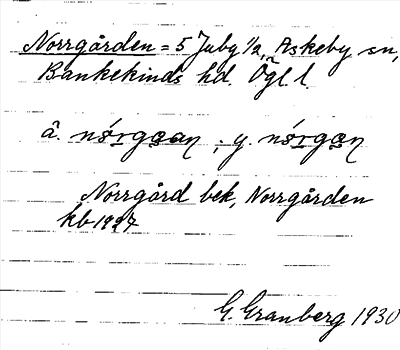 Norrgården = 5 Juby 1/2, Askeby sn,
Bankekinds hd. Ögl. l.
â. nórgɑɑn ; y. nórgɑn
Norrgård bek, Norrgården
kb 1927
G. Granberg 1930